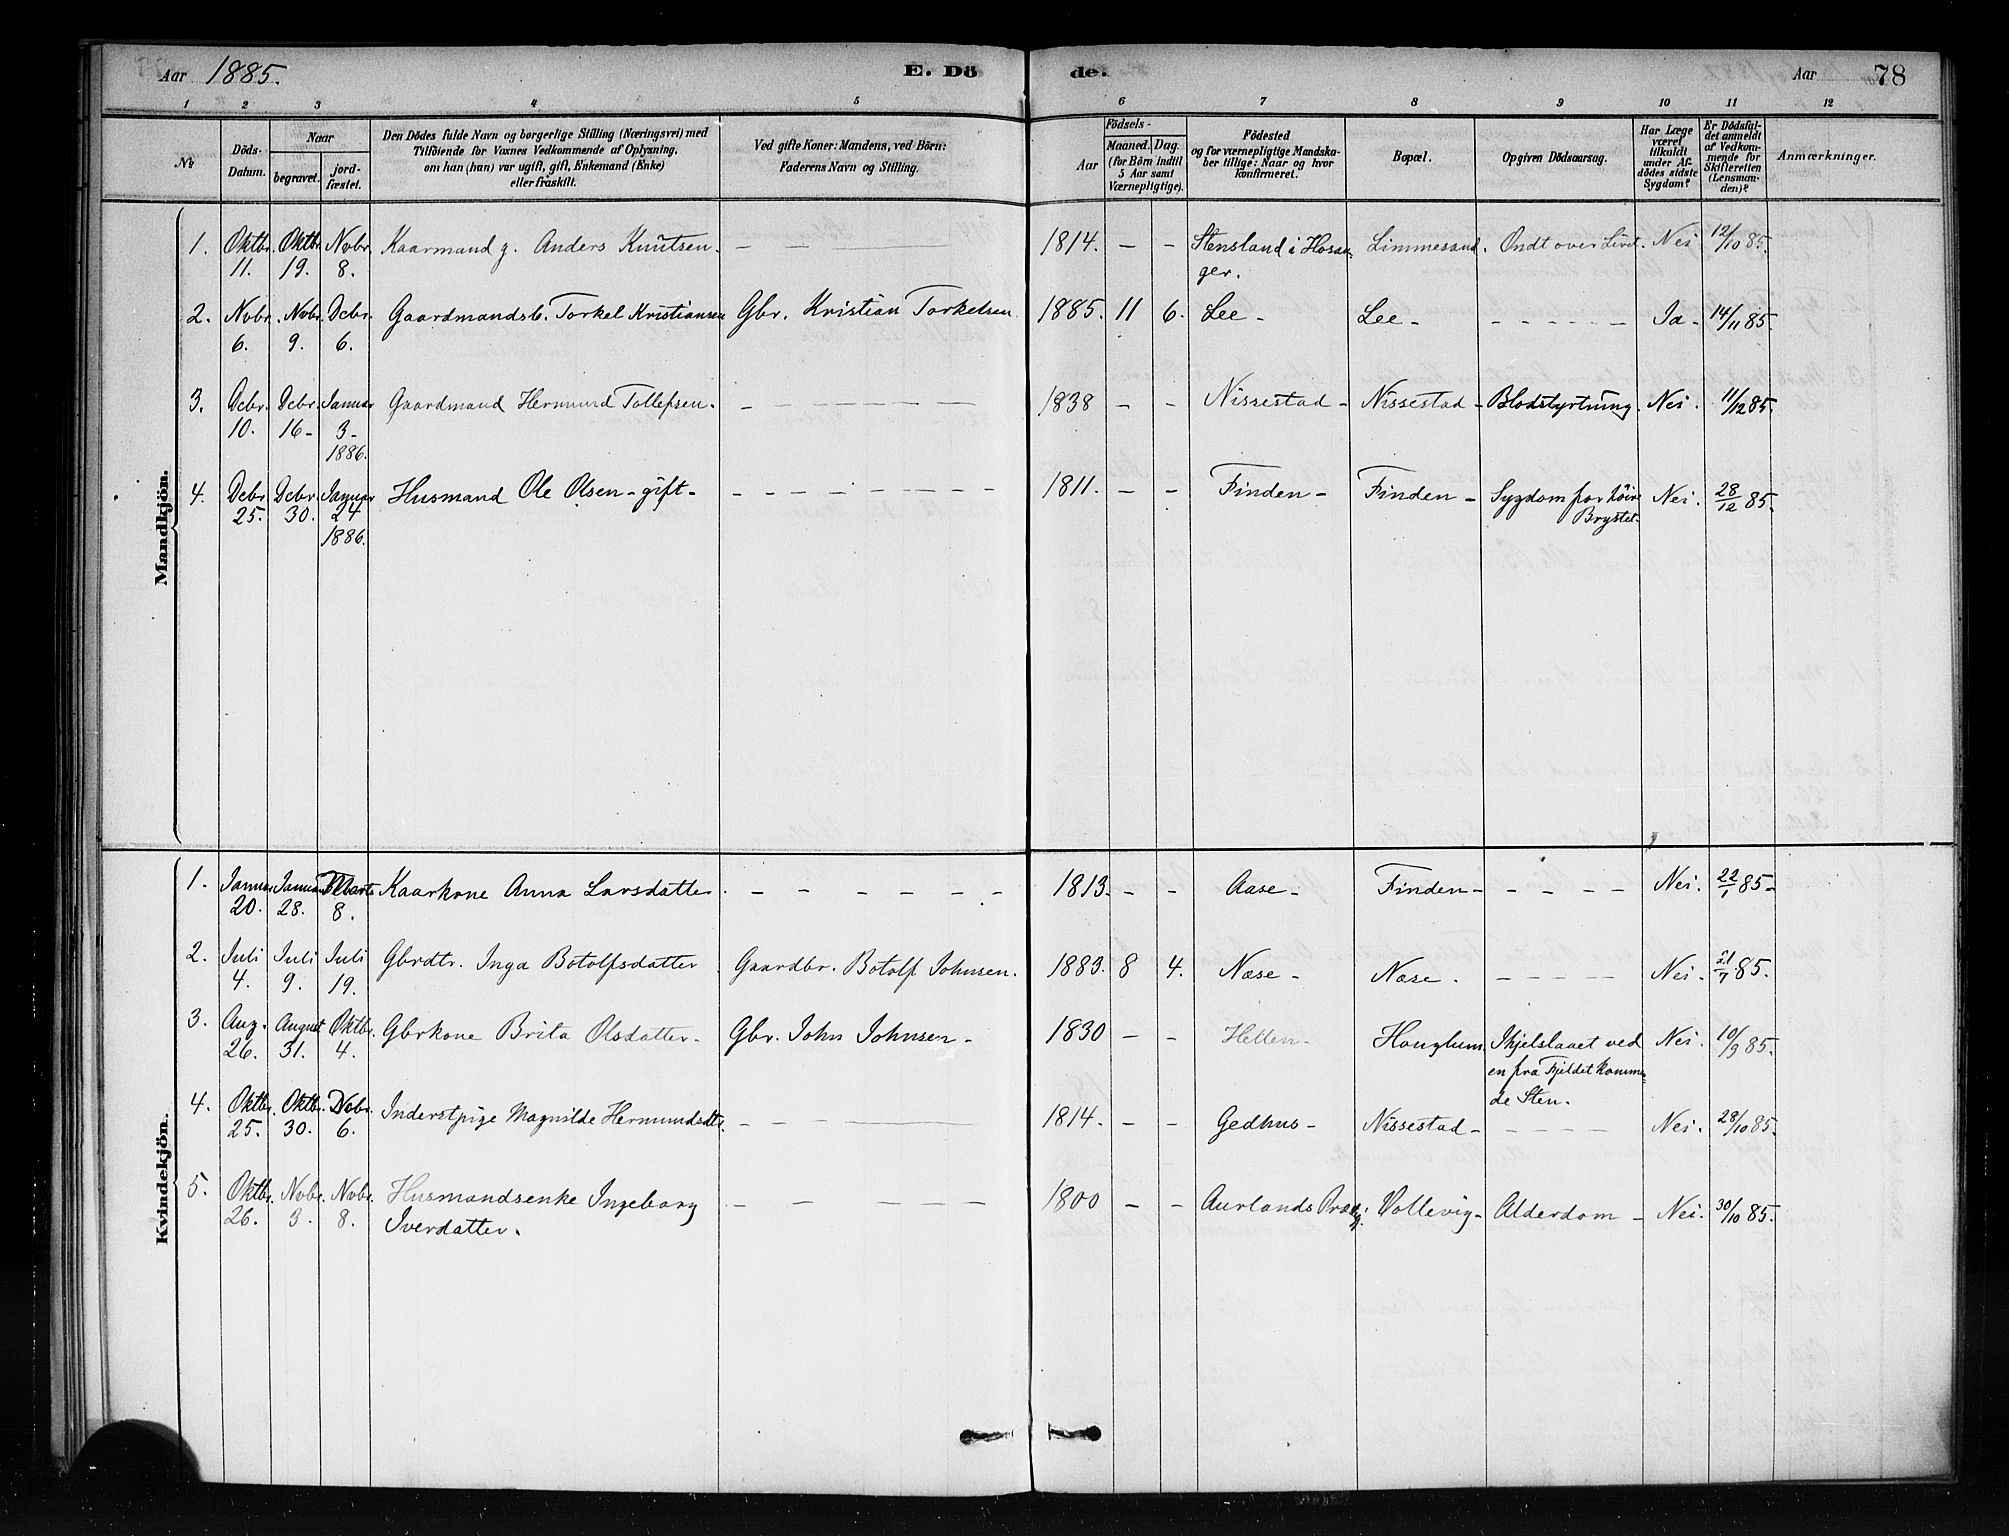 Aar 1885. E. Döde. Aar 78
1 2 3 4 5 6 7 8 9 10 11 12
No
Döds-Datum.
Naar
begravet.
jord-fæstet.
Den Dödes fulde Navn og borgerlige Stilling (Næringsvei) med
Tilföiende for Voxnes Vedkommende af Oplysning,
om han (hun) var ugift, gift, Enkemand (Enke)
eller fraskilt.
Ved gifte Koner: Mandens, ved Börn:
Faderens Navn og Stilling.
Födsels-
Aar
Maaned. Dag.
(for Börn indtil
5 Aar samt
Værnepligtige).
Födested
og for værnepligtige Mandska-
ber tillige: Naar og hvor
konfirmeret.
Bopæl.
Opgiven Dödsaarsag.
Har Læge
været
tilkaldt
under Af-
dödes sidste
Sygdom?
Er Dödsfal-
det anmeldt
af Vedkom-
mende for
Skifteretten
(Lensman-
den)?
Anmærkninger.
Mandkjön.
1. Oktbr. Oktbr. Novbr. Kaarmand g. Anders Knutsen. – – – 1814. – – Stensland i Hosan- Limmesand. Ondt over Livet. Nei 12/10 85.
11. 19. 8. ger.
2. Novbr. Novbr. Dcbr. Gaardmandsb. Torkel Kristiansen Gbr. Kristian Torkelsen. 1885. 11 6. Lee – Lee – – – – – – Ja – 14/11 85.
6. 9. 6.
3. Dcbr. Dcbr. Januar Gaardmand Hermund Tollefsen. – – – 1838 – – Nissestad – Nissestad – Blodstyrtning. Nei. 11/12 85.
10. 16 – 3 –
1886.
4. Dcbr. Dcbr. Januar Husmand Ole Olsen – gift – – – – 1811. – – Finden – Finden – Sygdom for høire Nei. 28/12 85.
25. 30. 24 Brystet.
1886.
Kvindekjön.
1. Januar Januar Marts Kaarkone Anna Larsdatter. – – – 1813. – – Aase – Finden – – – – – Nei. 22/1 85 –
20. 28. 8.
2. Juli Juli Juli Gbrdtr. Inga Botolfsdatter. Gaardbr. Botolf Johnsen. 1883. 8 4. Nase – Nase. – – – – Nei. 21/7 85.
4. 9. 19.
3. Aug. August Oktbr. Gbrkone Brita Olsdatter. Gbr. John Johnsen – 1830 – – Hetten – Hauglum. Ihjelslaaet ved Nei. 10/9 85.
26. 31. 4. en fra Fjeldet komme-
de Sten.
4. Oktbr. Oktbr. Dcbr. Inderstpige Magnilde Hermundsdtr. – – – 1814. – – Gedhus – Nissestad – – – – – Nei. 28/10 85.
25. 30. 6.
5. Oktbr. Novbr. Novbr. Husmandsenke Ingeborg – – – 1800 – – Aurlands Præstg. Vollevig – Alderdom – Nei. 30/10 85.
26. 3. 8. Iverdatter.